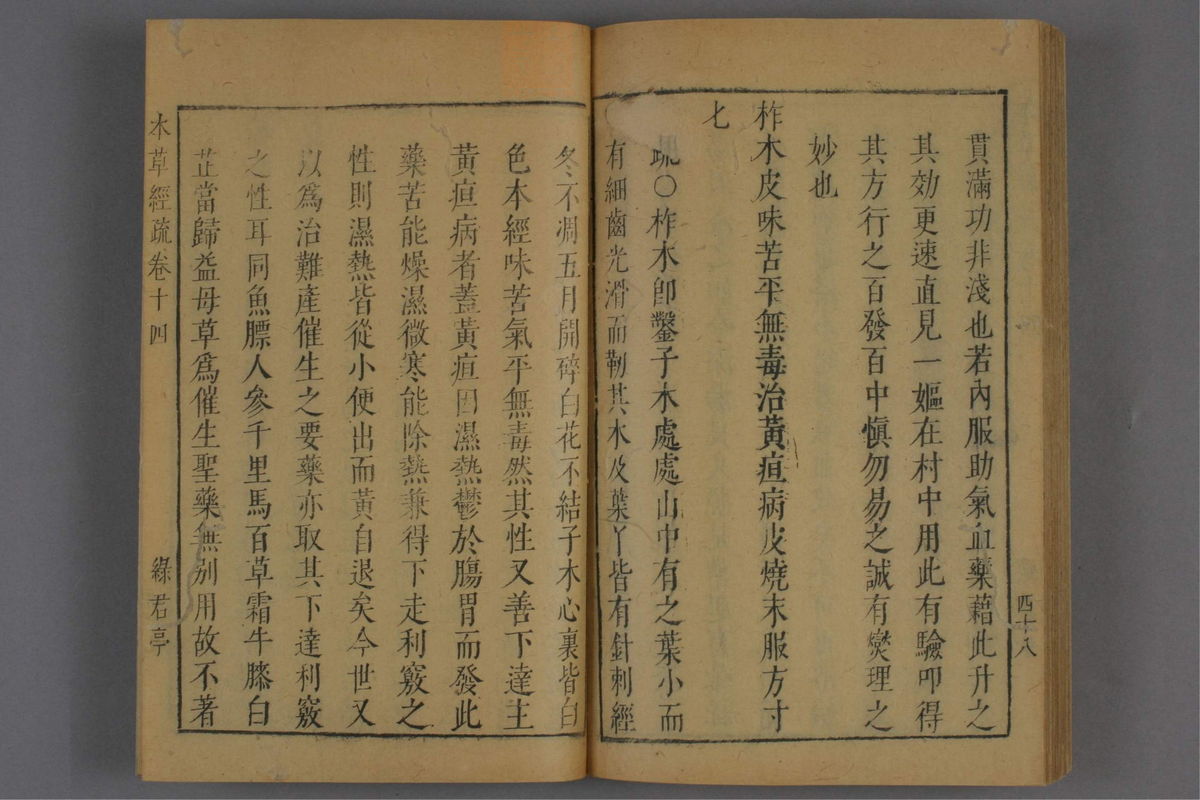 貫滿功非淺也若內服助氣血藥藉此升之
其効更速直見一嫗在村中用此有驗叩得
其方行之百發百中愼勿易之誠有爕理之
妙也
柞木皮味苦平無毒治黃疸病皮燒末服方寸
匕
疏○柞木卽鑿子木處處山中有之葉小而
有細齒光滑而韌其木及葉丫皆有針刺經
四十八
冬不凋五月開碎白花不結子木心裏皆白
色本經味苦氣平無毒然其性又善下達主
黃疸病者蓋黃疸因濕熱鬱於腸胃而發此
藥苦能燥濕微寒能除熱兼得下走利竅之
性則濕熱皆從小便出而黃自退矣今世又
以爲治難產催生之要藥亦取其下達利竅
之性耳同魚膘人參千里馬百草霜牛膝白
芷當歸益母草爲催生聖藥無别用故不著
本草經疏卷十四
綠君亭